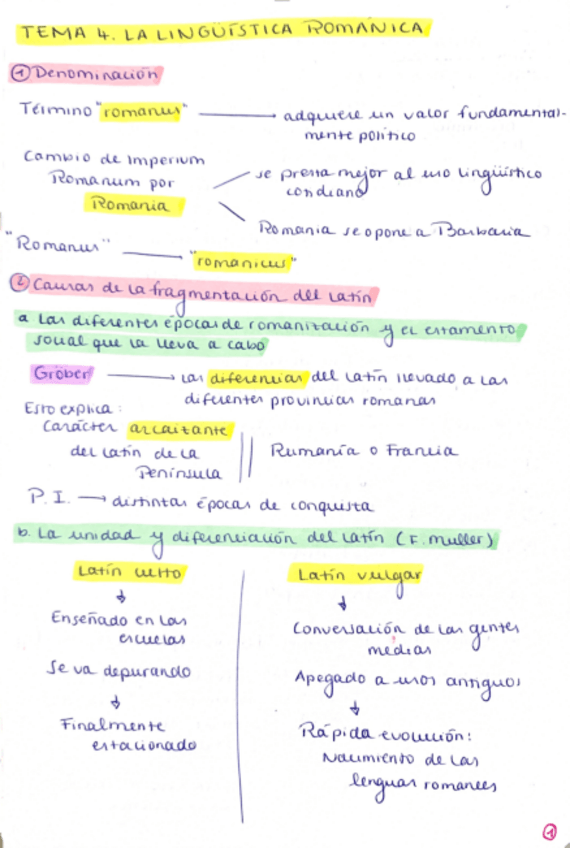 TEMA 4. LA LINGÜÍSTICA ROMÁNICA
① Denominación
Término "romanus" → adquiere un valor fundamental-
mente político
Cambio de Imperium
Romanum por
Romania
se presta mejor al uso lingüístico
condiano
Romania se opone a Barbaria
"Romanus" → "romanicus"
② Causas de la fragmentación del latín
a Las diferentes épocas de romanización y el estamento
social que la lleva a cabo
Gröber → Las diferencias del latín llevado a las
diferentes provincias romanas
Esto explica:
Carácter arcaizante
del latín de la
Península
Rumanía o Francia
P. I. → distintas épocas de conquista
b. La unidad y diferenciación del latín (F. Muller)
Latín culto
↓
Enseñado en las
escuelas
Se va depurando
↓
Finalmente
estacionado
Latín vulgar
↓
Conversación de las gentes
medias
Apegado a usos antiguos
↓
Rápida evolución:
Nacimiento de las
lenguas romances
①